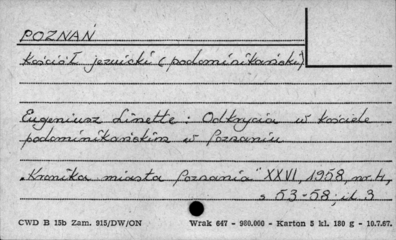 POZNAŃ
Kościół jezuicki (podominikański)
Eugeniusz Linette: Odkrycia w kościele
podominikańskim w Poznaniu
"Kronika miasta Poznania" XXVI, 1958, nr. 4,
s 53-58; il. 3
CWD B 15b Zam. 915/DW/ON Wrak 647 - 980.000 - Karton 5 kl. 180 g - 10.7.67.